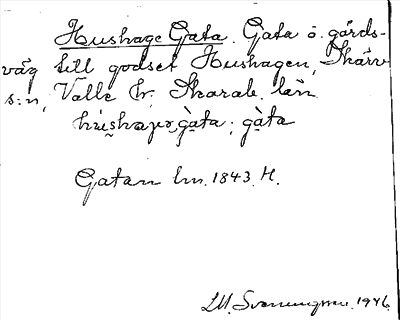 Hushage Gata. Gata o. gårds-
väg till godset Hushagen, Skärv
s:n, Valle hr. Skarab. län
gàta; gàta
Gatan lm. 1843 H.
I.M. Svenungsson. 1946.